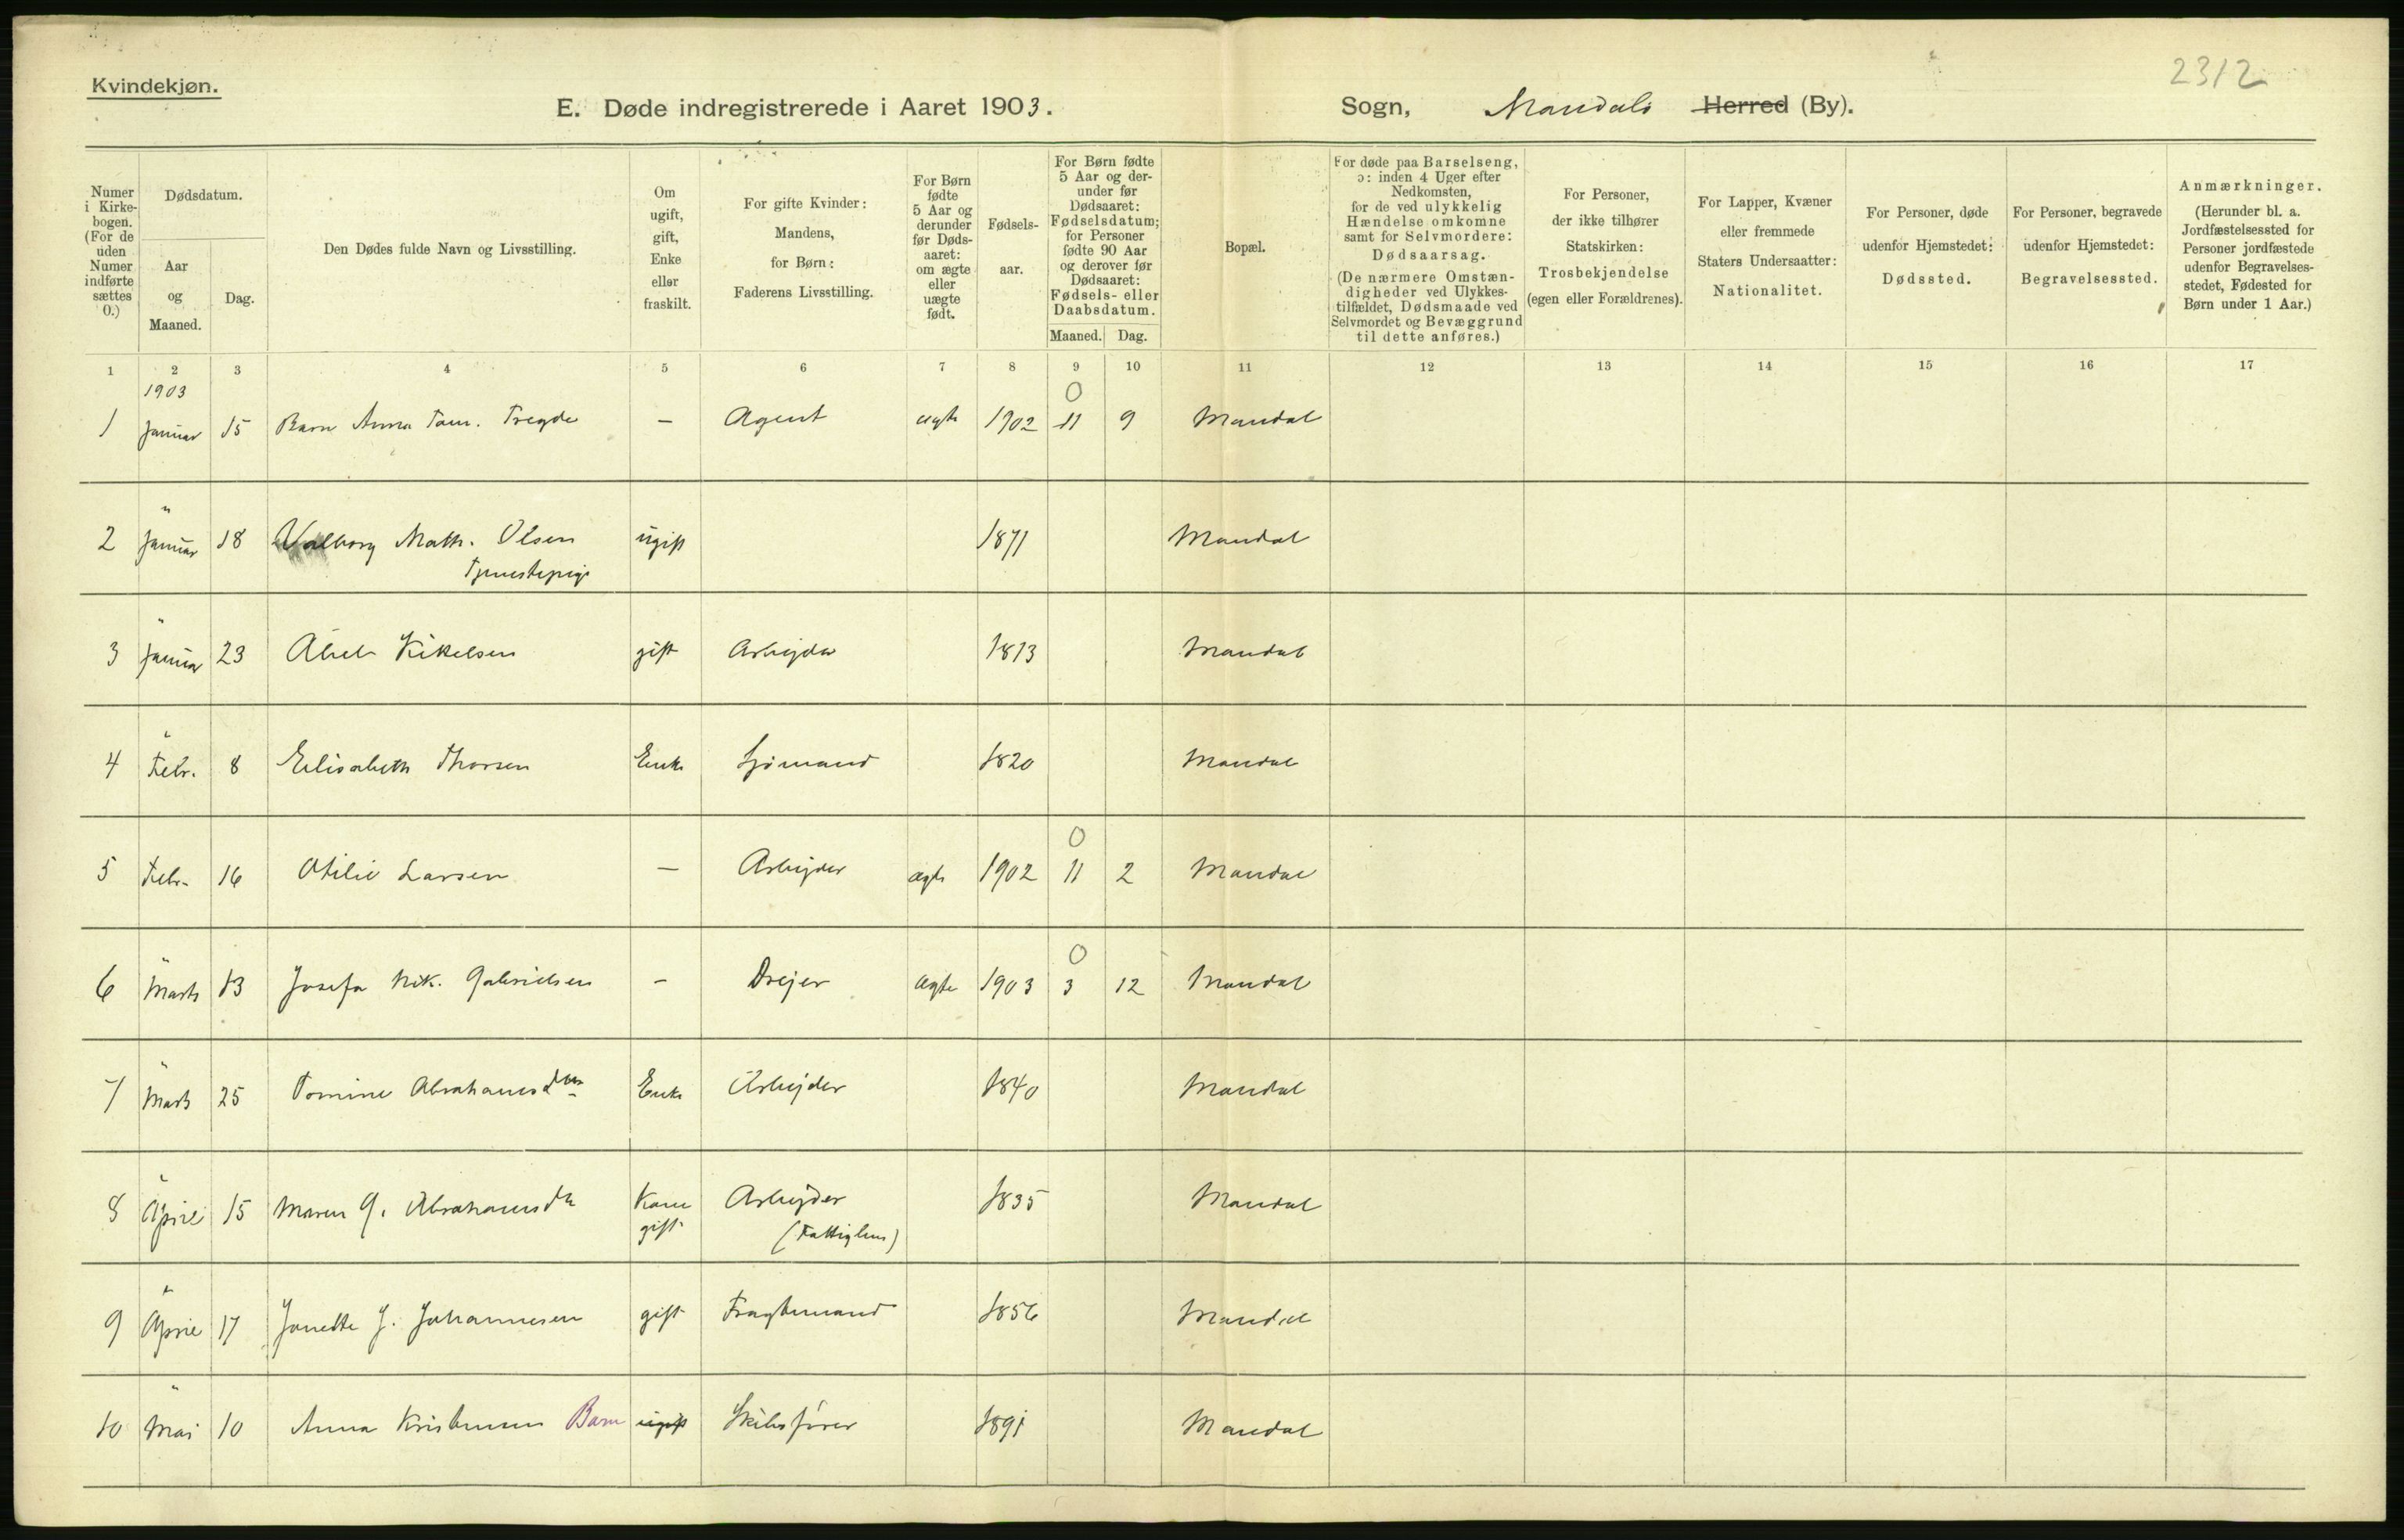 Kvindekjøn.
2312
E. Døde indregistrerede i Aaret 1903.
Sogn, Mandals Herred (By).
Numer i Kirkebogen. (For de uden Numer indførte sættes 0.)
Dødsdatum.
Aar og Maaned.
Dag.
Den Dødes fulde Navn og Livsstilling.
Om ugift, gift, Enke eller fraskilt.
For gifte Kvinder: Mandens, for Børn: Faderens Livsstilling.
For Børn fødte 5 Aar og derunder før Dødsaaret: om ægte eller uægte født.
Fødselsaar.
For Børn fødte 5 Aar og derunder før Dødsaaret: Fødselsdatum; for Personer fødte 90 Aar og derover før Dødsaaret: Fødsels- eller Daabsdatum.
Maaned. Dag.
Bopæl.
For døde paa Barselseng, ɔ: inden 4 Uger efter Nedkomsten, for de ved ulykkelig Hændelse omkomne samt for Selvmordere: Dødsaarsag. (De nærmere Omstændigheder ved Ulykkestilfældet, Dødsmaade ved Selvmordet og Bevæggrund til dette anføres.)
For Personer, der ikke tilhører Statskirken: Trosbekjendelse (egen eller Forældrenes).
For Lapper, Kvæner eller fremmede Staters Undersaatter: Nationalitet.
For Personer, døde udenfor Hjemstedet: Dødssted.
For Personer, begravede udenfor Hjemstedet: Begravelsessted.
Anmærkninger. (Herunder bl. a. Jordfæstelsessted for Personer jordfæstede udenfor Begravelsesstedet, Fødested for Børn under 1 Aar.)
1 2 3 4 5 6 7 8 9 10 11 12 13 14 15 16 17
1903 0
1 Januar 15 Barn Anna Tom. Tregde — Agent ægte 1902 11 9 Mandal
"
2 Januar 18 Valborg Math. Olsen ugift 1871 Mandal
Tjenestepige
"
3 Januar 23 Abel Kikelsen gift Arbejder 1813 Mandal
"
4 Febr. 8 Elisabeth Thorsen Enke Sjømand 1820 Mandal
0
5 Febr. 16 Otilie Larsen — Arbejder ægte 1902 11 2 Mandal
" 0
6 Marts 13 Josefa Nik. Gabrielsen — Drejer ægte 1903 3 12 Mandal
"
7 Marts 25 Tomine Abrahamsen Enke Arbejder 1840 Mandal
"
8 April 15 Maren G. Abrahamsen Kone Arbejder 1835 Mandal
gift (Fattiglem)
"
9 April 17 Janette J. Johannesen gift Fragtemand 1856 Mandal
"
10 Mai 10 Anna Kristensen Barn ugift Skibsfører 1891 Mandal